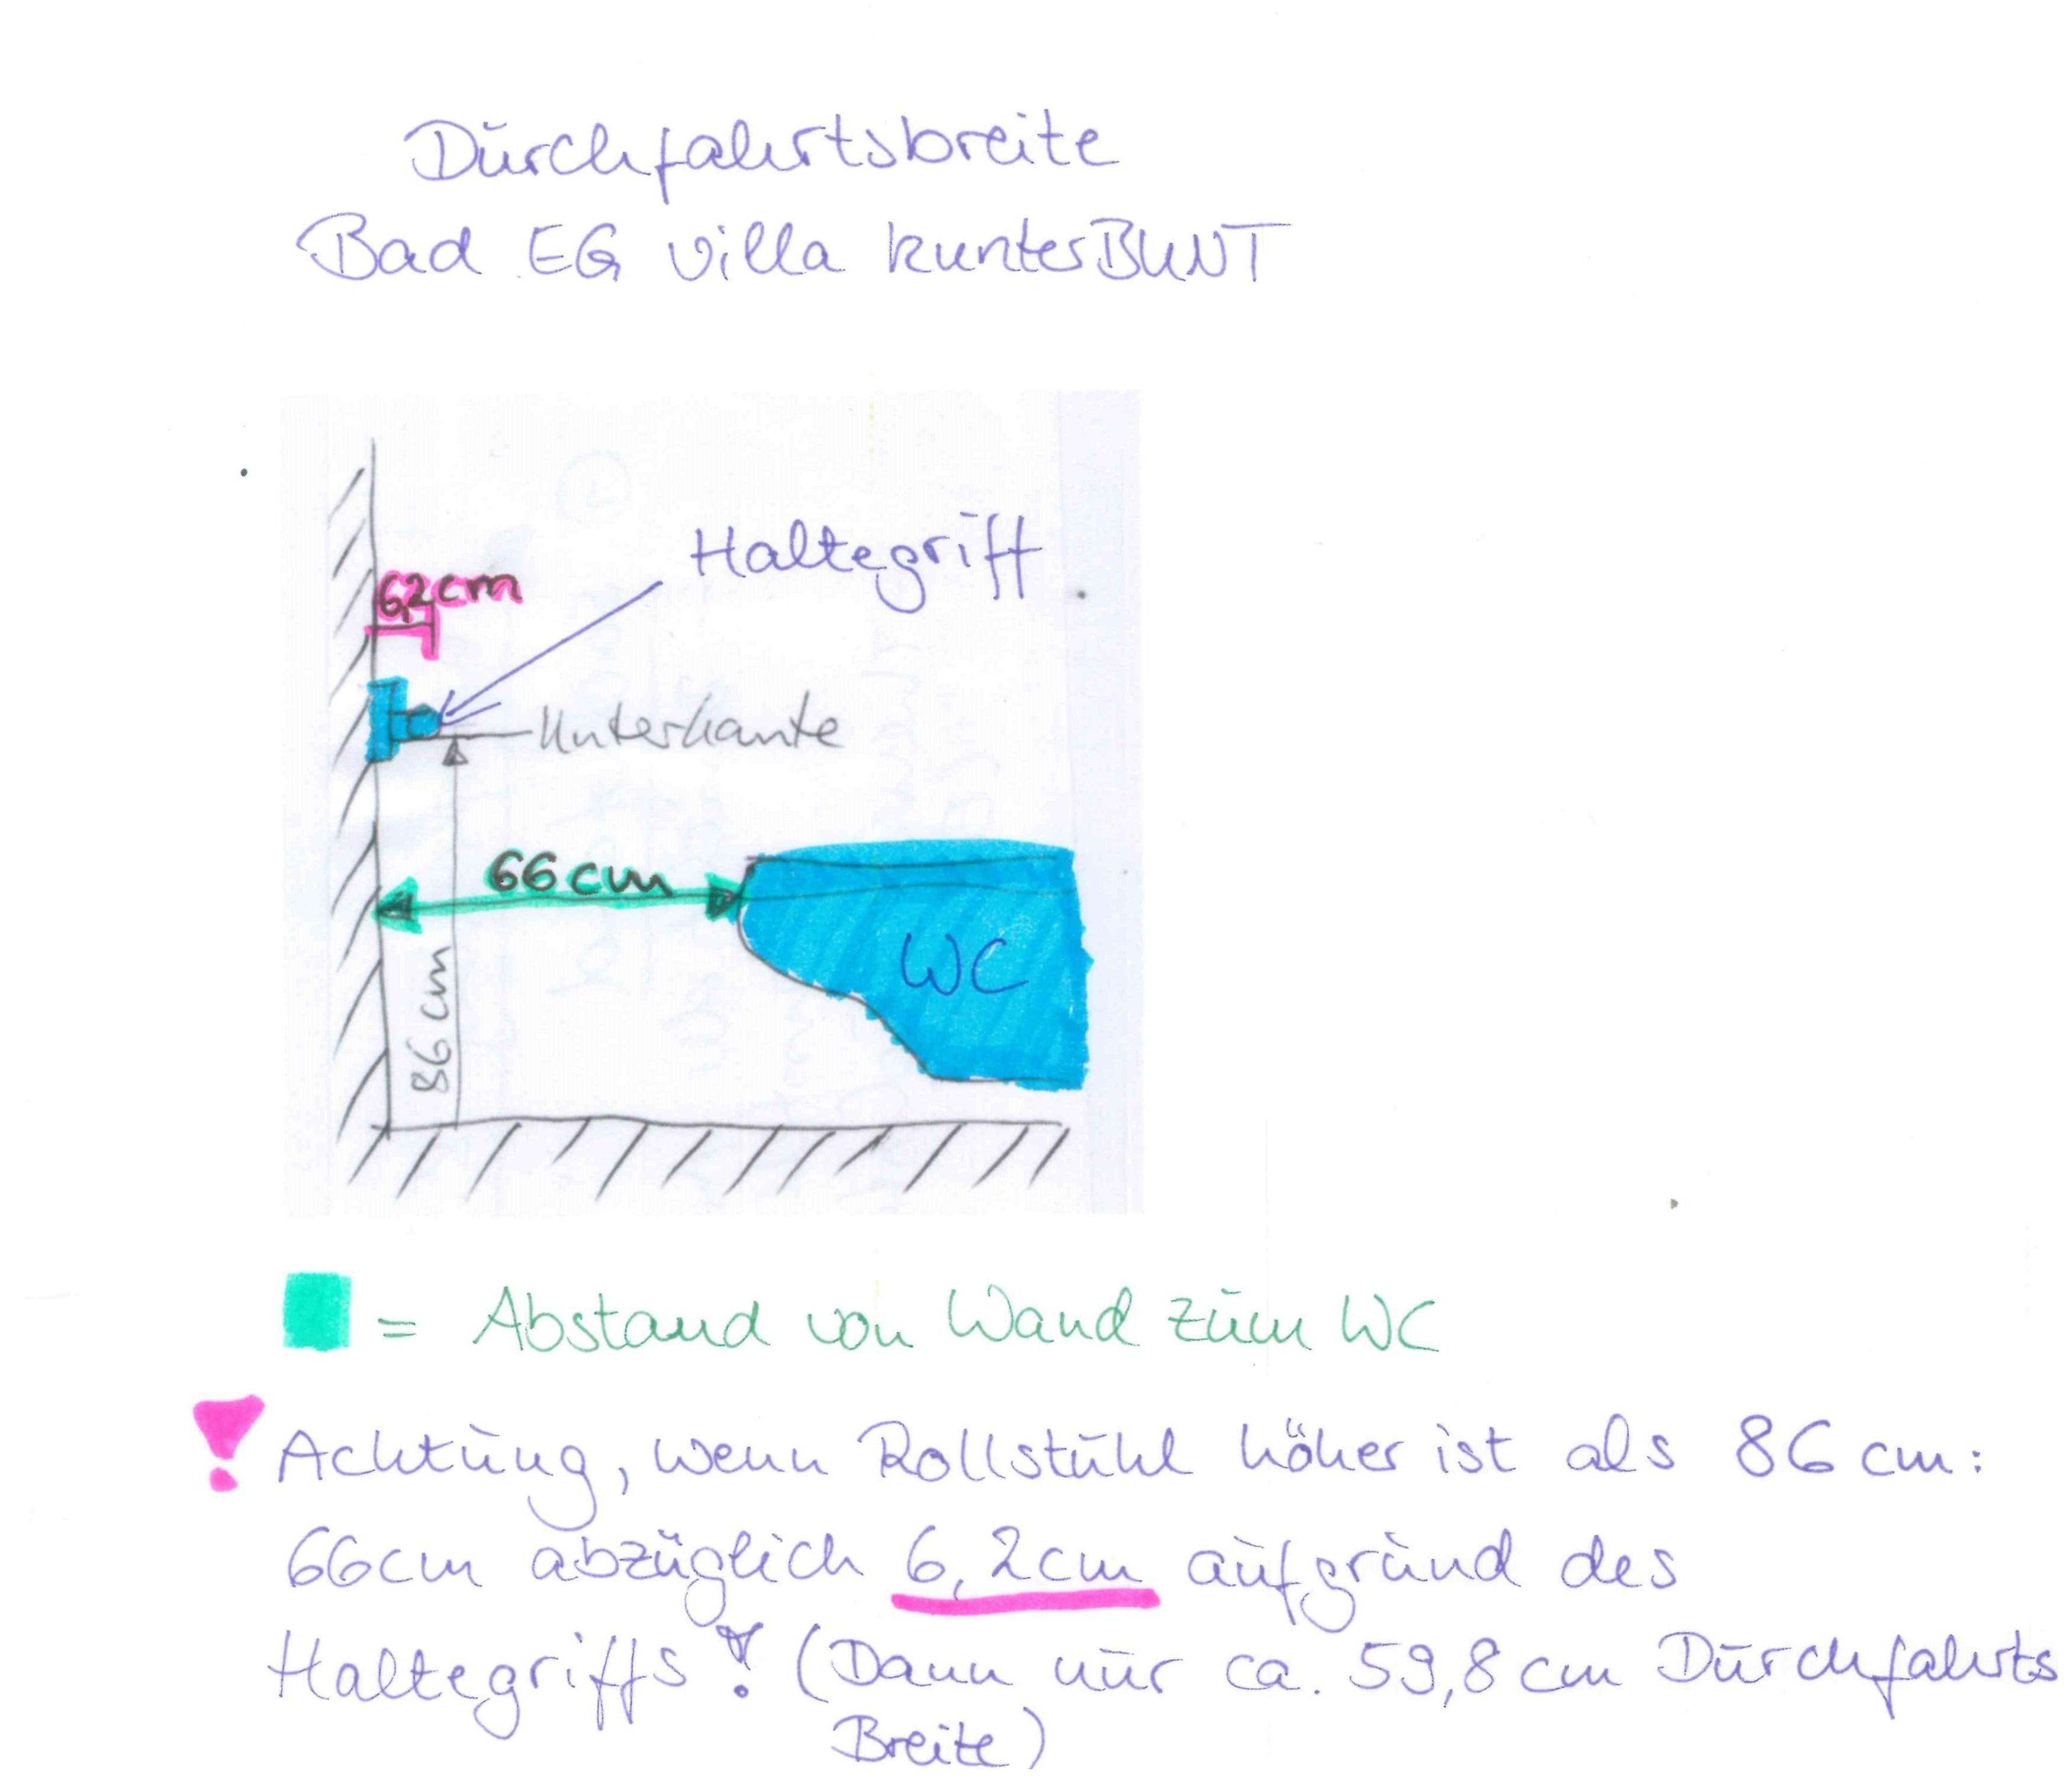 Durchfahrtsbreite
Bad EG Villa kunterBUNT
Haltegriff
6,2cm
Unterkante
66 cm
WC
86 cm
= Abstand von Wand zum WC
! Achtung, wenn Rollstuhl höher ist als 86 cm:
66cm abzüglich 6,2cm aufgrund des
Haltegriffs! (Dann nur ca. 59,8 cm Durchfahrts
Breite)